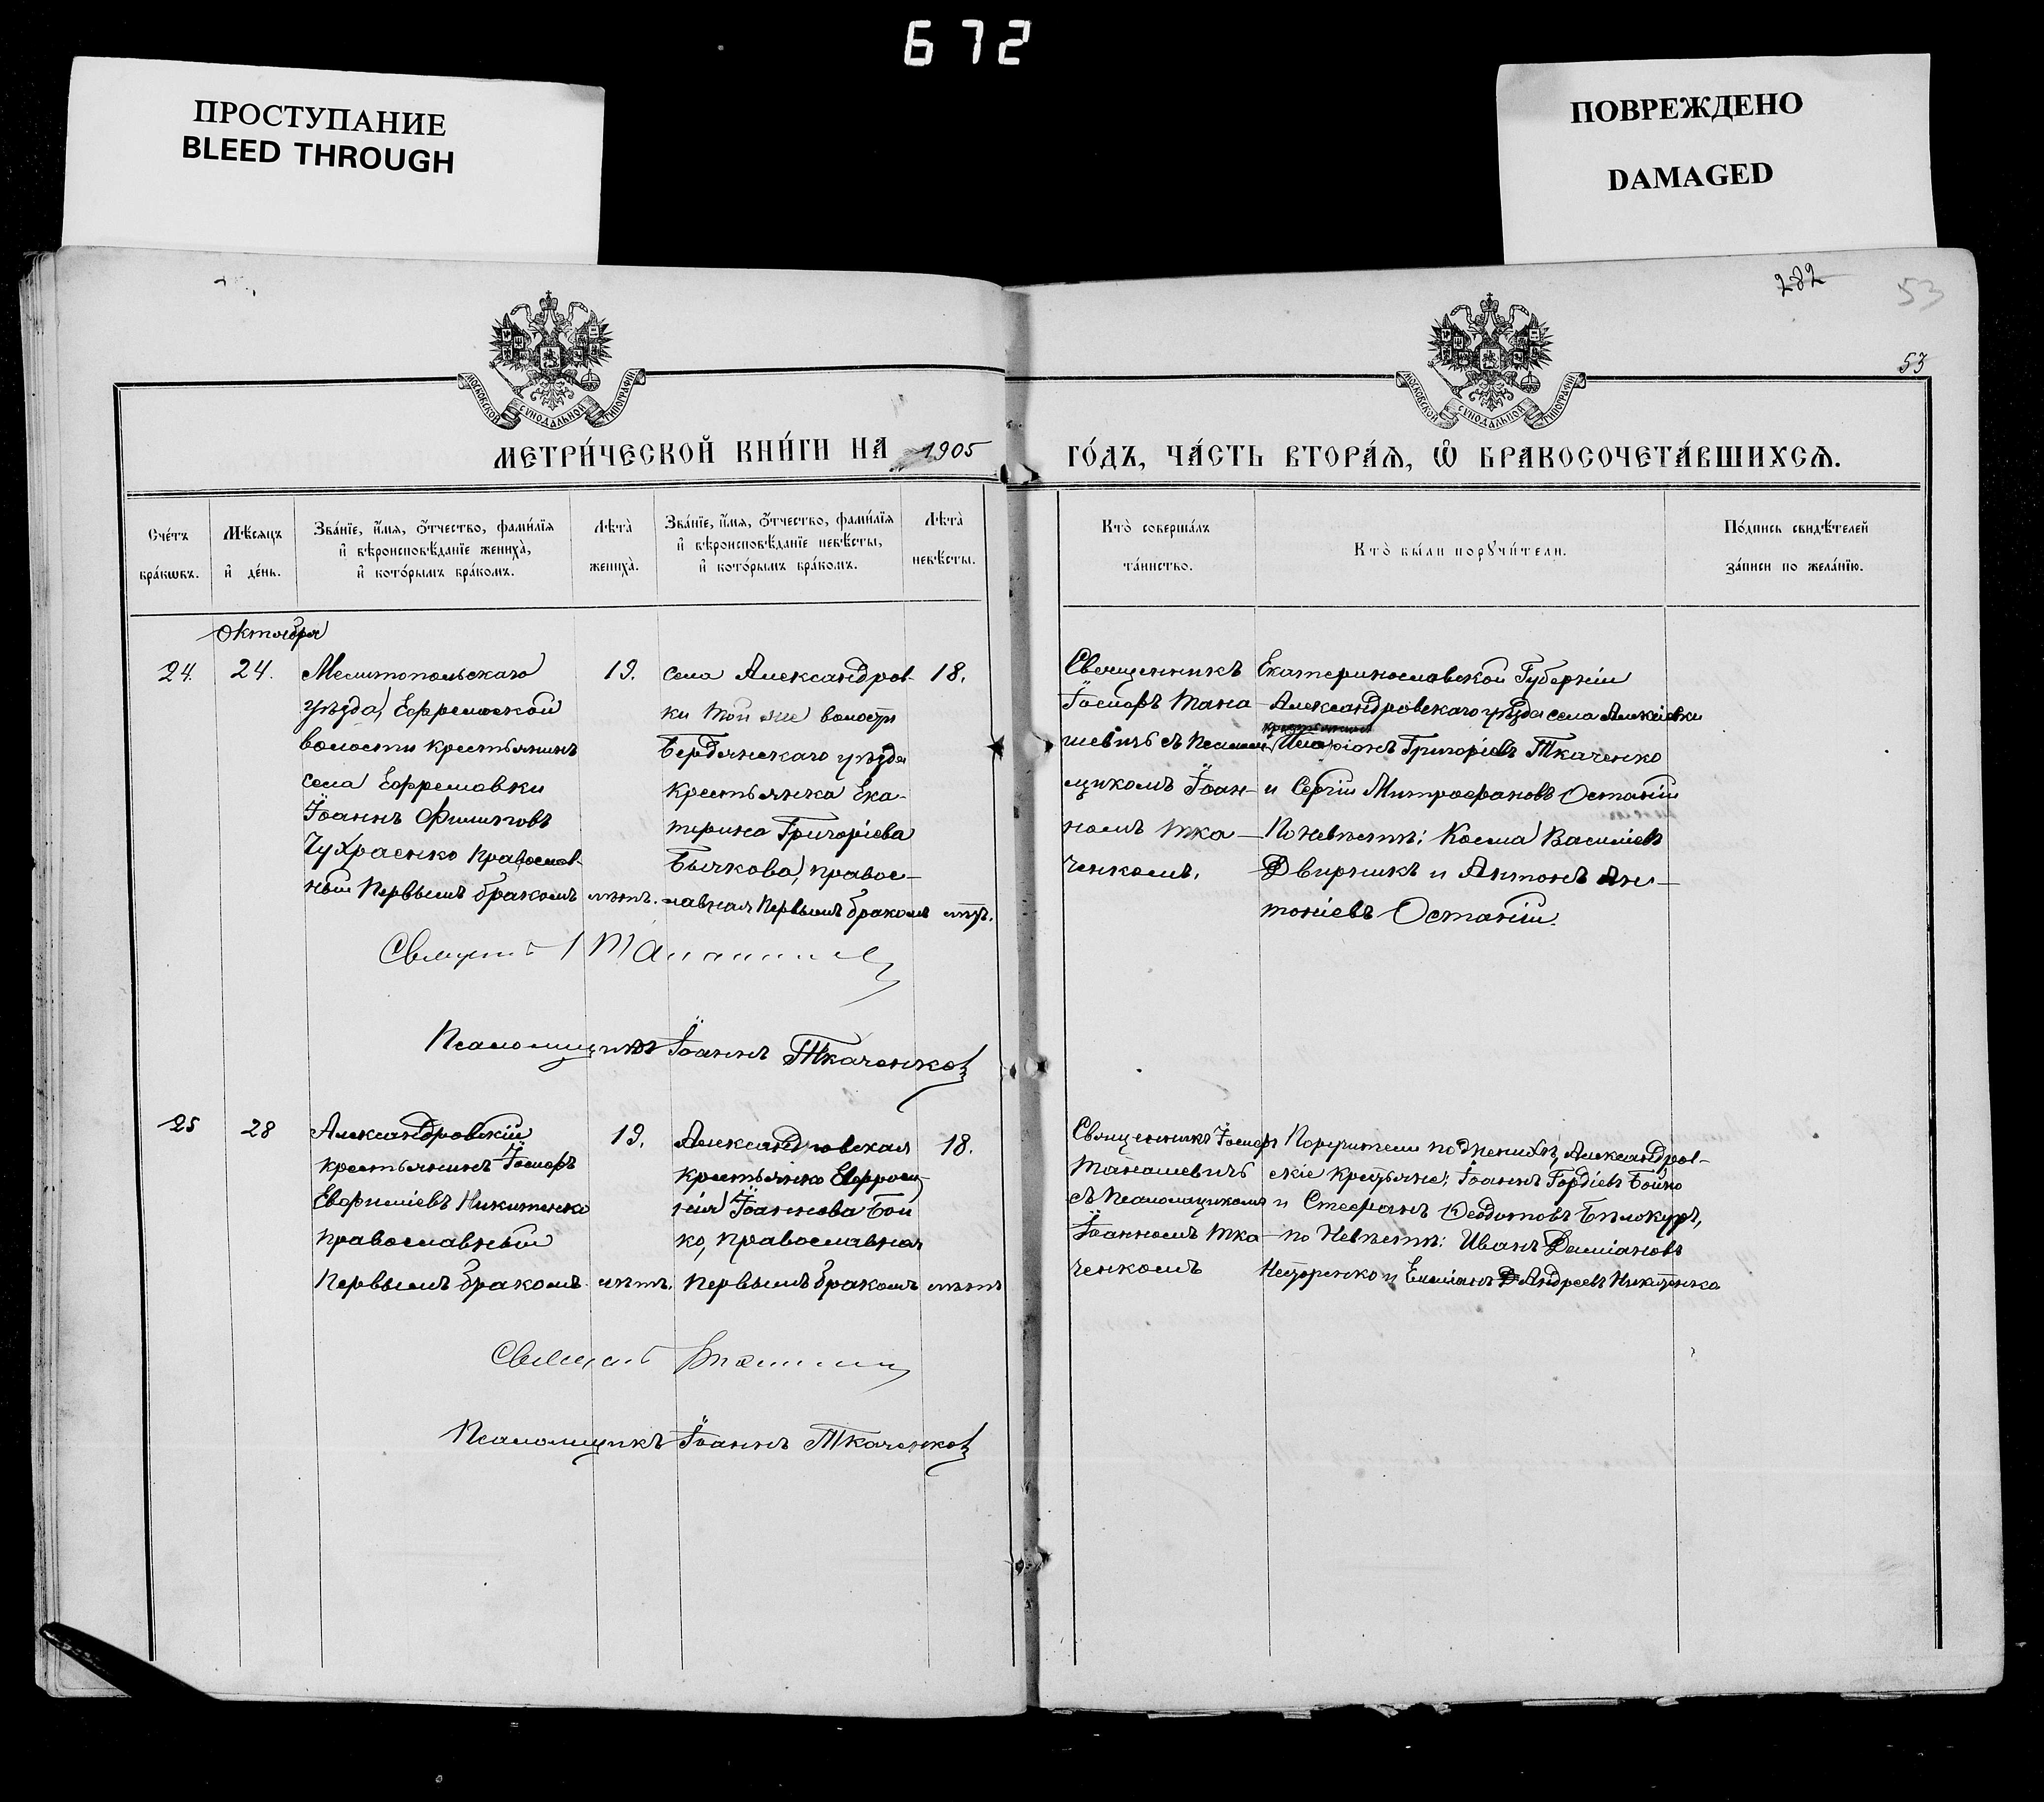 672
ПРОСТУПАНИЕ
BLEED THROUGH
ПОВРЕЖДЕНО
DAMAGED
282
53
53
МОСКОВСКОЙ СѴНОДАЛЬНОЙ ТИПОГРАФІИ
МОСКОВСКОЙ СѴНОДАЛЬНОЙ ТИПОГРАФІИ
МЕТРИ́ЧЕСКОЙ КНИ́ГИ НА 1905
ГО́ДЪ, ЧА́СТЬ ВТОРА́Я, Ѽ БРАКОСОЧЕТА́ВШИХСЯ.
Сче́тъ
бра́кωвъ.
Мѣ́сяцъ
и҆ де́нь.
Зва́нїе, и҆́мя, ѻ҆́тчество, фами́лїя
и҆ вѣроисповѣ́данїе жениха̀,
и҆ кото́рымъ бра́комъ.
Лѣ́та
жениха̀.
Зва́нїе, и҆́мя, ѻ҆́тчество, фами́лїя
и҆ вѣроисповѣ́данїе невѣ́сты,
и҆ кото́рымъ бра́комъ.
Лѣ́та
невѣ́сты.
Кто̀ соверша́лъ
та́инство.
Кто̀ бы́ли порꙋчи́тели.
По́дпись свидѣ́телей
за́писи по жела́нїю.
Октября
24.
24.
Мелитопольскаго
уѣзда, Ефремовской
волости крестьянинъ
села Ефремовки
Іоаннъ Филиповъ
Чухраенко православ-
ный Первымъ бракомъ
19.
лѣтъ.
села Александров-
ки той же волости
Бердянскаго уѣзда
крестьянка Ека-
терина Григоріева
Бычкова, правос-
лавная Первымъ бракомъ
18.
лѣтъ.
Священникъ
Іосифъ Тана-
шевичъ съ Псалом-
щикомъ Іоан-
номъ Тка-
ченкомъ.
Екатеринославской Губерніи
Александровскаго уѣзда села Алексѣевки
Иларіонъ Григоріевъ Ткаченко
и Сергій Митрофановъ Остапій
По невѣстѣ: Косма Василіевъ
Двирникъ и Антонъ Ан-
тоніевъ Остапій.
Псаломщикъ Іоаннъ Ткаченковъ
25
28
Александровскій
крестьянинъ Іосифъ
Евфиміевъ Никитенко
православный
Первымъ бракомъ
19.
лѣтъ.
Александровская
крестьянка Евфроси-
нія Іоаннова Бой
ко, православная
Первымъ бракомъ
18.
лѣтъ
Священникъ Іосифъ
Танашевичъ
съ Псаломщикомъ
Іоанномъ Тка-
ченкомъ
Поручители по женихѣ, Александров-
скіе крестьяне; Іоаннъ Гордіевъ Бойко
и Стефанъ Ѳеодотовъ Бѣлокуръ,
по Невѣстѣ: Иванъ Даміановъ
Несторенко и Емиліанъ Андреевъ Никитенко
Псаломщикъ Іоаннъ Ткаченковъ